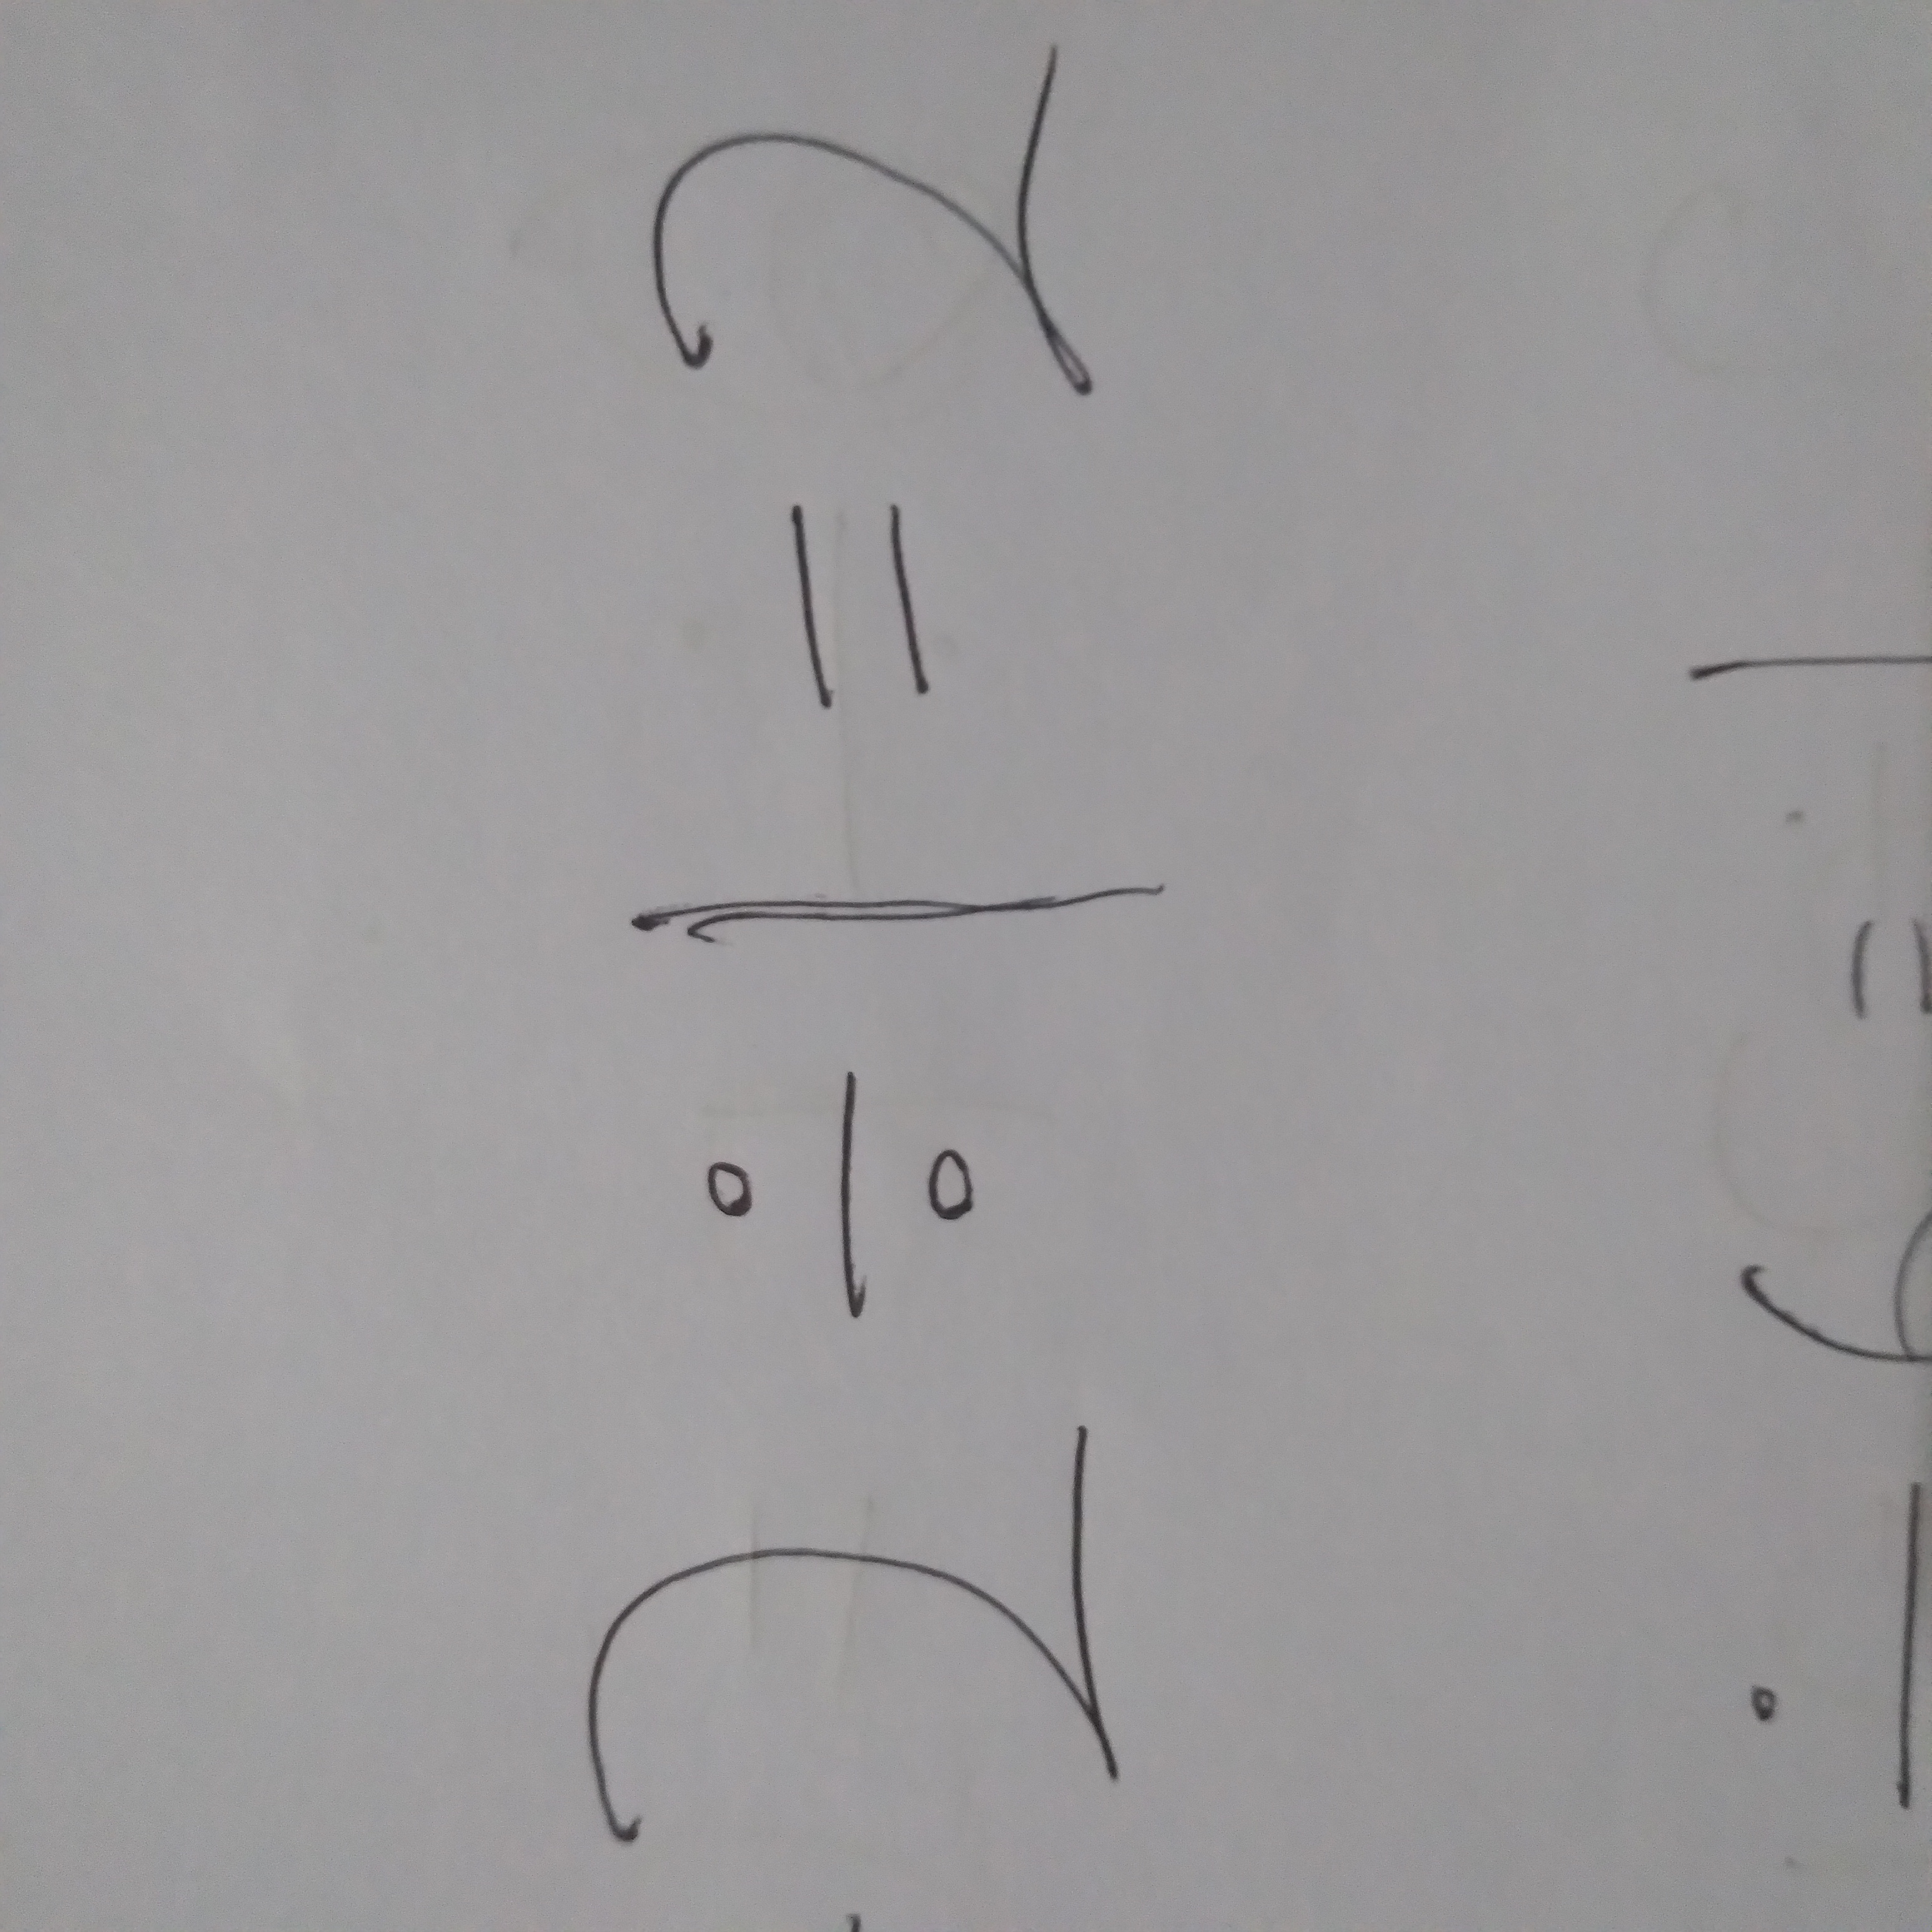 2 ÷ 1 = 2
÷ 6 = 1